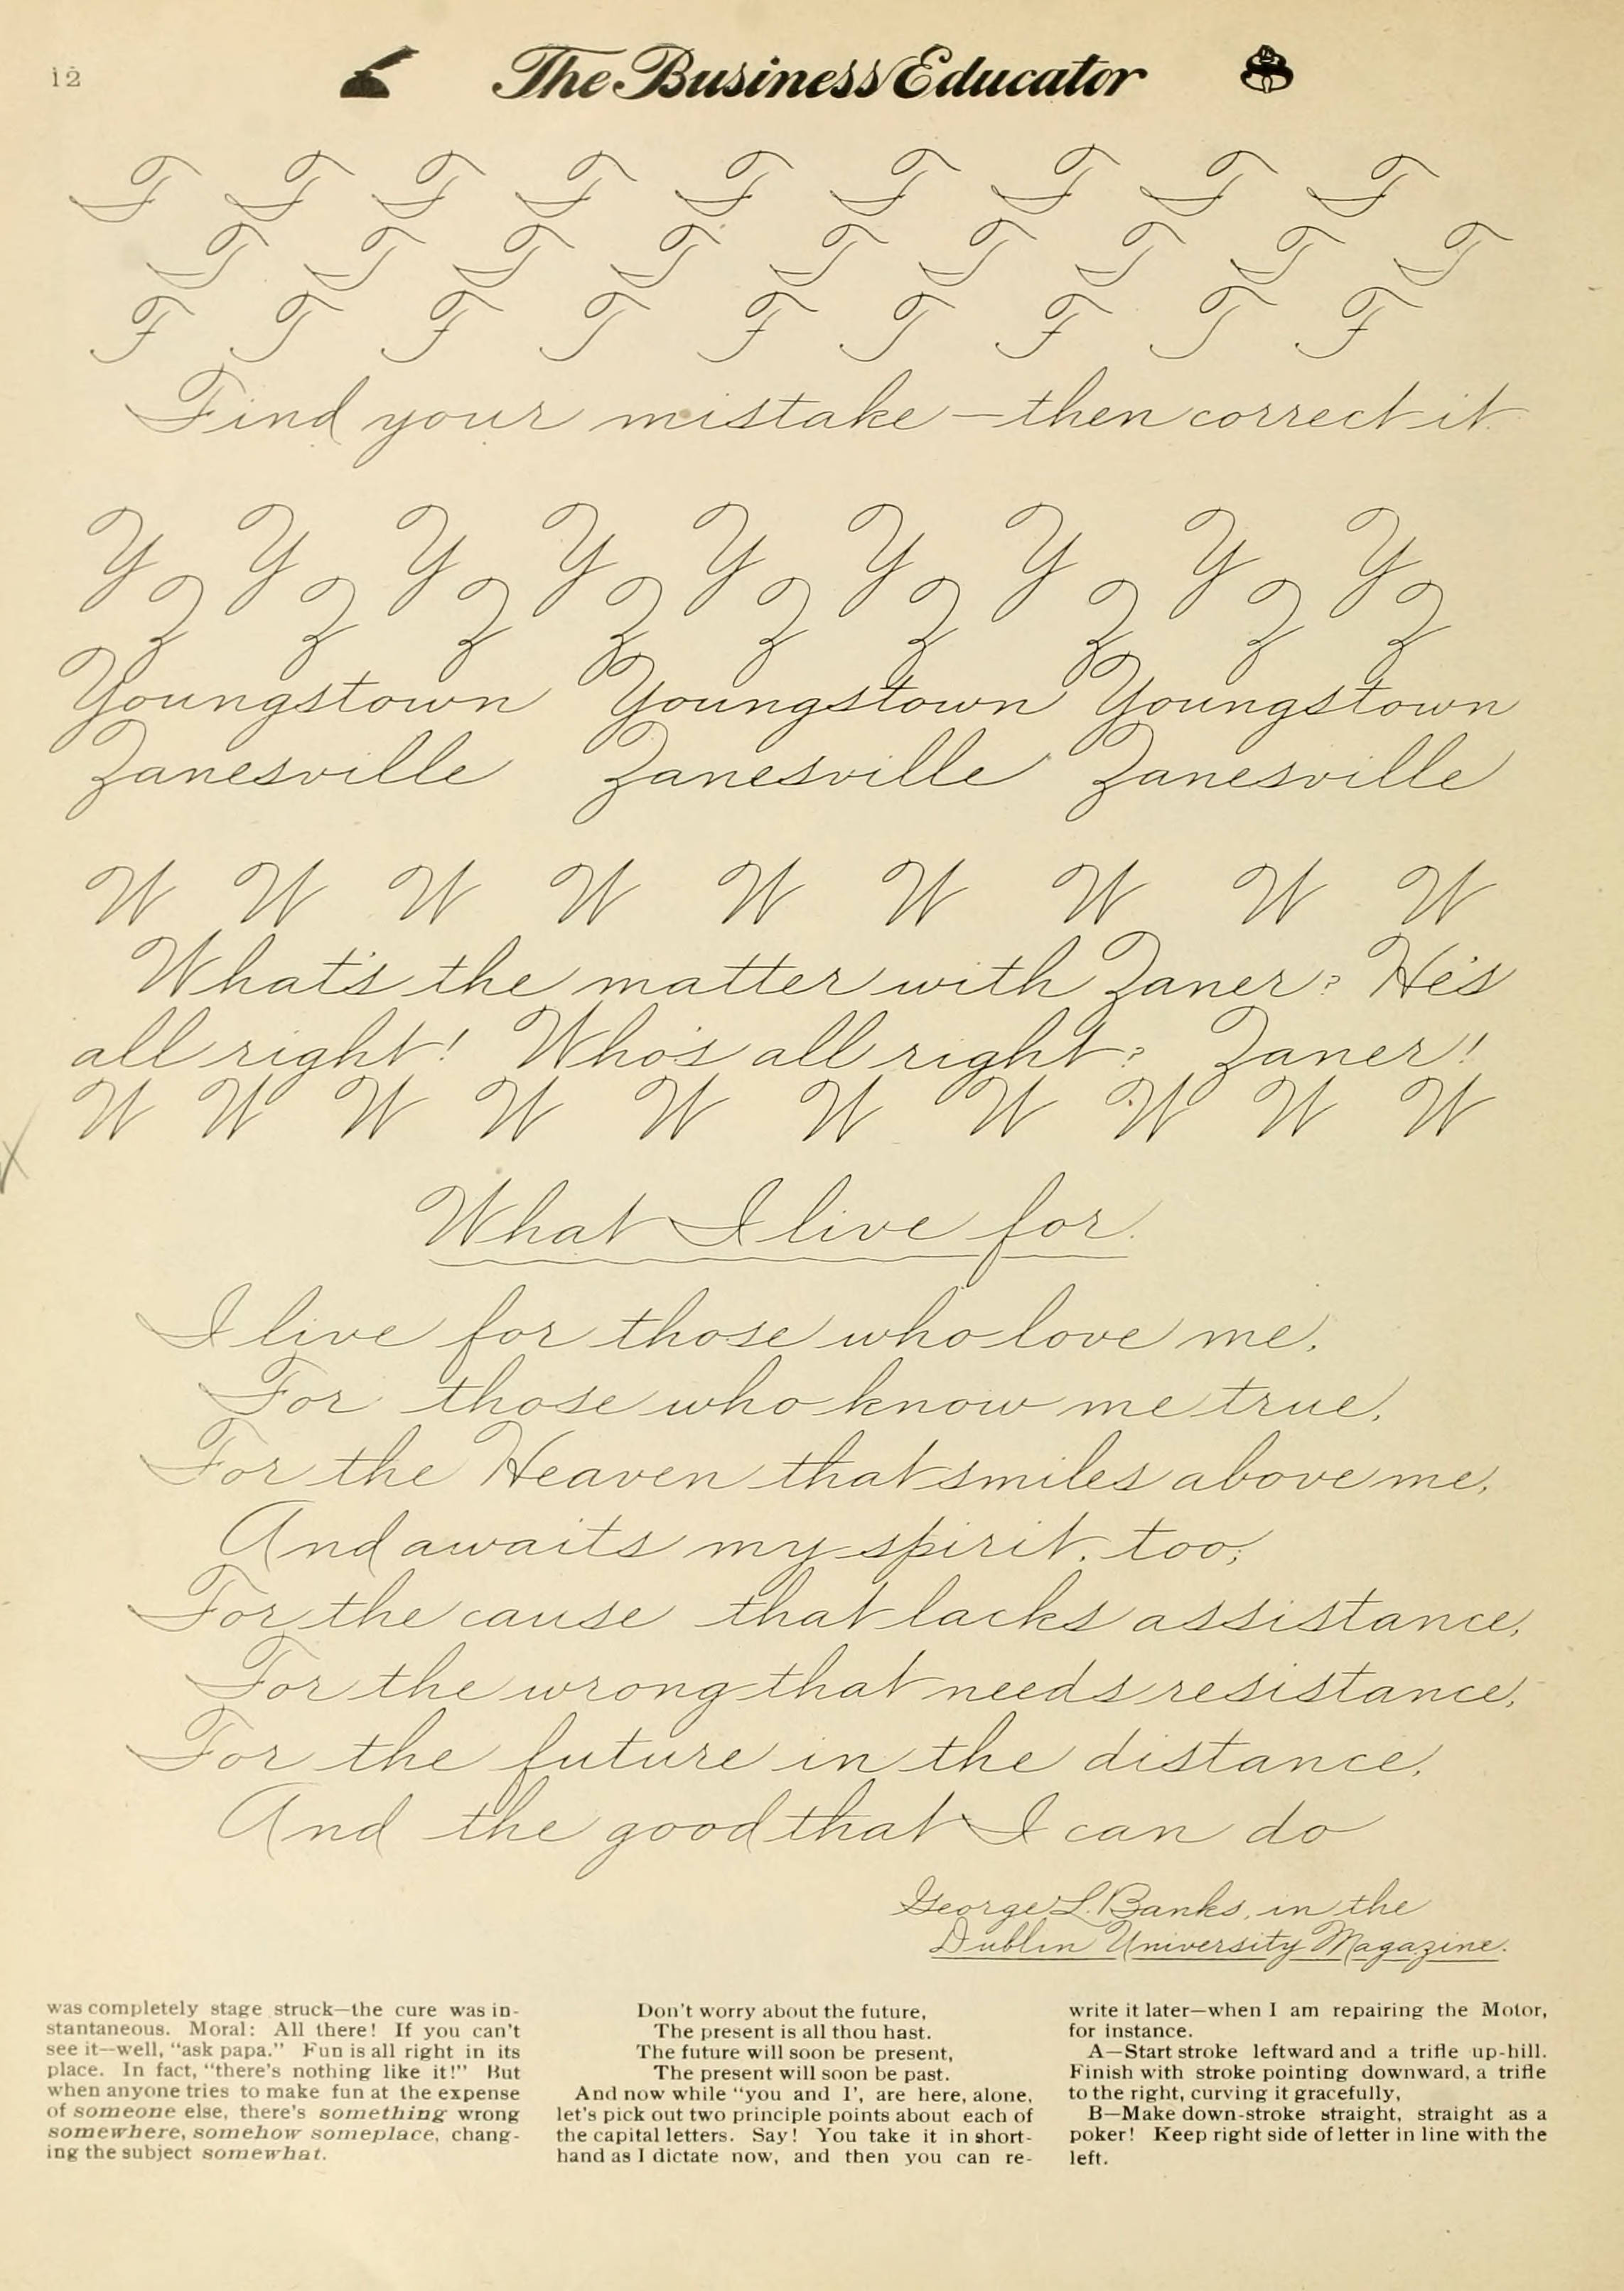 12
The Business Educator
F F F F F F F F F
T T T T T T T T T
F T F T F T F T F
Find your mistake—then correct it.
Y Y Y Y Y Y Y Y Y
Z Z Z Z Z Z Z Z Z
Youngstown Youngstown Youngstown
Zanesville Zanesville Zanesville
W W W W W W W W W
What's the matter with Zaner? He's
all right! Who's all right? Zaner!
W W W W W W W W W W
What I live for.
I live for those who love me,
For those who know me true,
For the Heaven that smiles above me,
And awaits my spirit, too;
For the cause that lacks assistance,
For the wrong that needs resistance,
For the future in the distance,
And the good that I can do
George L. Banks, in the
Dublin University Magazine.
was completely stage struck—the cure was in-
stantaneous. Moral: All there! If you can't
see it—well, "ask papa." Fun is all right in its
place. In fact, "there's nothing like it!" But
when anyone tries to make fun at the expense
of someone else, there's something wrong
somewhere, somehow someplace, chang-
ing the subject somewhat.
Don't worry about the future,
The present is all thou hast.
The future will soon be present,
The present will soon be past.
And now while "you and I', are here, alone,
let's pick out two principle points about each of
the capital letters. Say! You take it in short-
hand as I dictate now, and then you can re-
write it later—when I am repairing the Motor,
for instance.
A—Start stroke leftward and a trifle up-hill.
Finish with stroke pointing downward, a trifle
to the right, curving it gracefully,
B—Make down-stroke straight, straight as a
poker! Keep right side of letter in line with the
left.